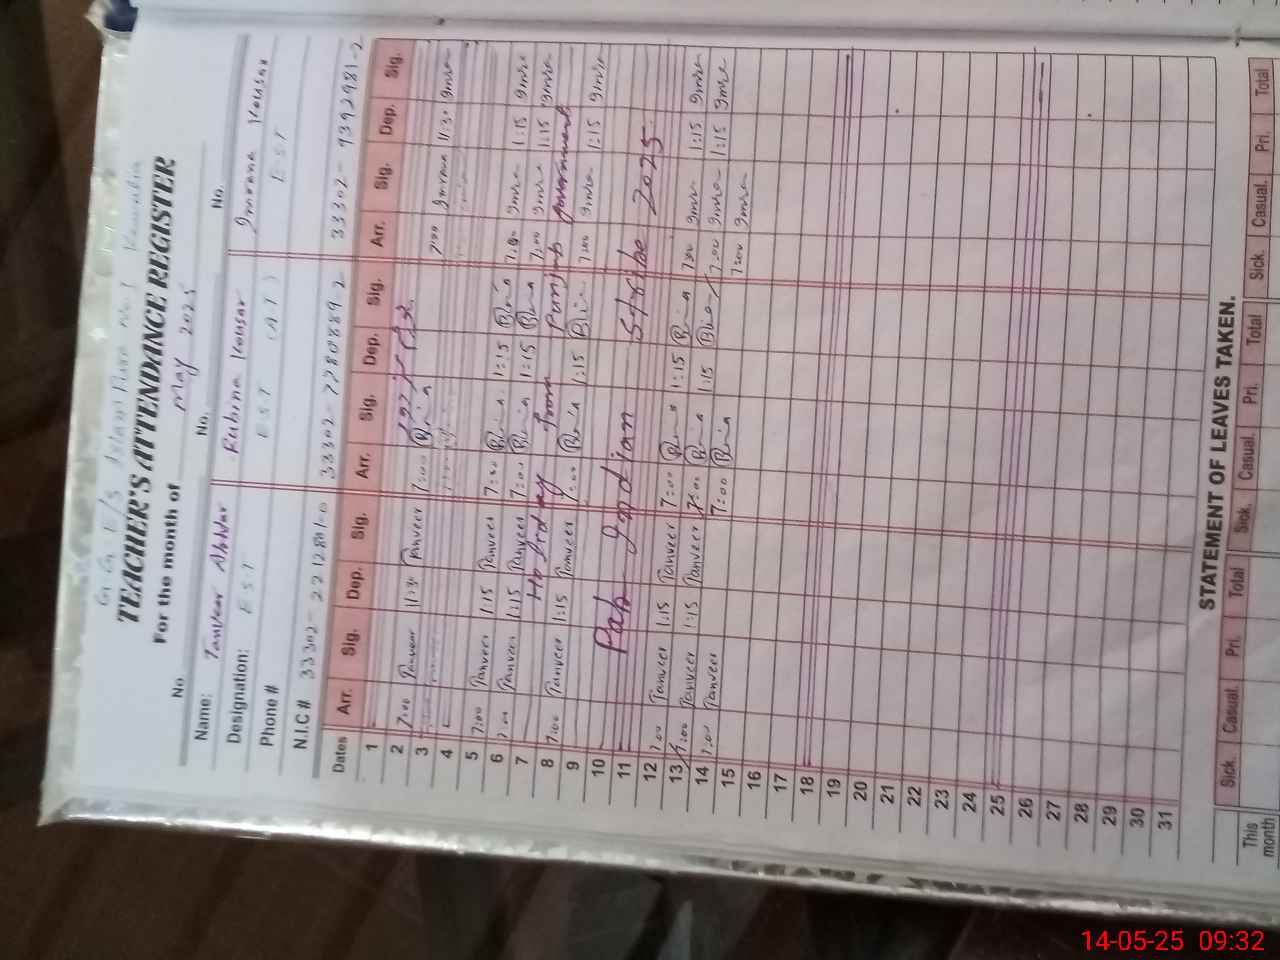 TEACHER'S ATTENDANCE REGISTER
For the month of May 2025
No. No. No.
Name: Tanveer Akhtar Rubina Kousar Imrana Kousar
Designation: EST EST (AT) EST
Phone #
N.I.C # 33302- 2212810-0 33302- 7280889-2 33302- 9392981-2
Dates Arr. Sig. Dep. Sig. Arr. Sig. Dep. Sig. Arr. Sig. Dep. Sig.
1
2 7:00 Tanveer 11:30 Tanveer 7:00
3 7:00 Imrana 11:30 Imra
4
5 7:00 Tanveer 1:15 Tanveer 7:00 1:15 7:00 Imra 1:15 Imra
6 7:00 Tanveer 1:15 Tanveer 7:00 1:15 7:00 Imra 1:15 Imra
7 Holiday from Punjab Government
8 7:00 Tanveer 1:15 Tanveer 7:00 1:15 7:00 Imra 1:15 Imra
9
10 Pak Indian Strike 2025
11
12 7:00 Tanveer 1:15 Tanveer 7:00 1:15 7:00 Imra 1:15 Imra
13 7:00 Tanveer 1:15 Tanveer 7:00 1:15 7:00 Imra 1:15 Imra
14 7:00 Tanveer 7:00 7:00 Imra
15
16
17
18
19
20
21
22
23
24
25
26
27
28
29
30
31
STATEMENT OF LEAVES TAKEN.
Sick. Casual. Pri. Total Sick. Casual. Pri. Total Sick. Casual. Pri. Total
This month
14-05-25 09:32